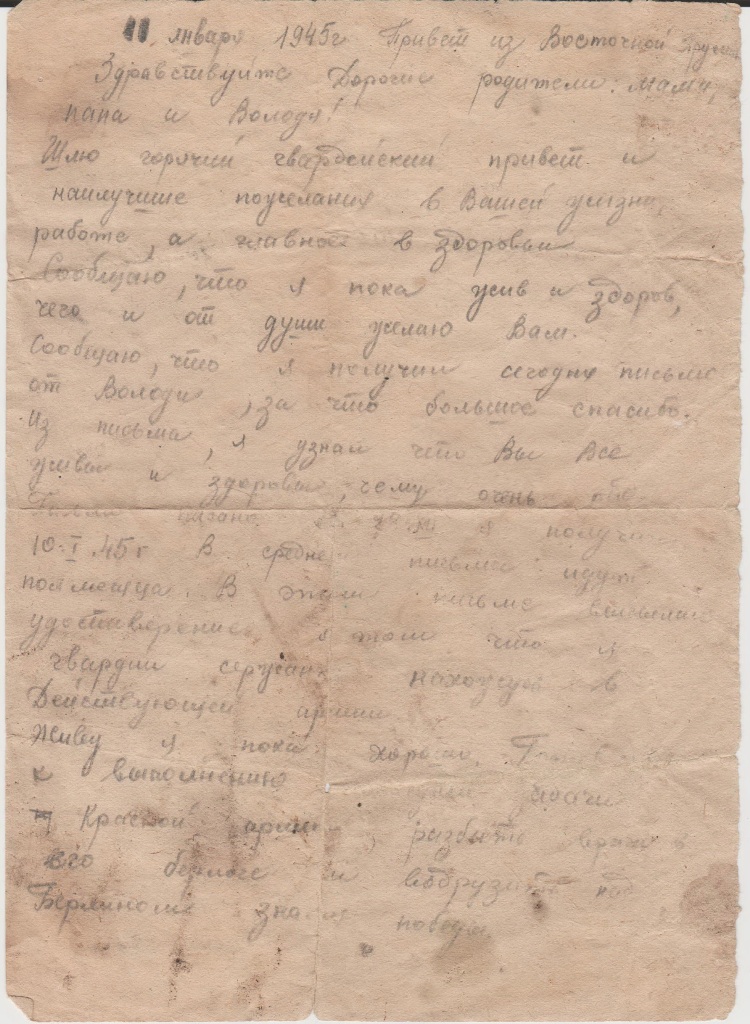 11 января 1945г Привет из Восточной Пруссии
Здравствуйте Дорогие родители: мама,
папа и Володя!
Шлю горячий гвардейский привет и
наилучшие пожелания в Вашей жизни,
работе, а главное в здоровьи
Сообщаю, что я пока жив и здоров,
чего и от души желаю Вам.
Сообщаю, что я получил сегодня письмо
от Володи, за что большое спасибо.
Из письма, я узнал что Вы Все
живы и здоровы, чему очень
я получил
10.I.45г В среднем письма идут
полмесяца. В этом письме высылаю
удостоверение, в том что я
гвардии сержант нахожусь в
Действующей армии.
Живу я пока хорошо.
к выполнению задачи
Красной армии, разбить врага в
его берлоге и водрузить над
Берлином знамя победы.